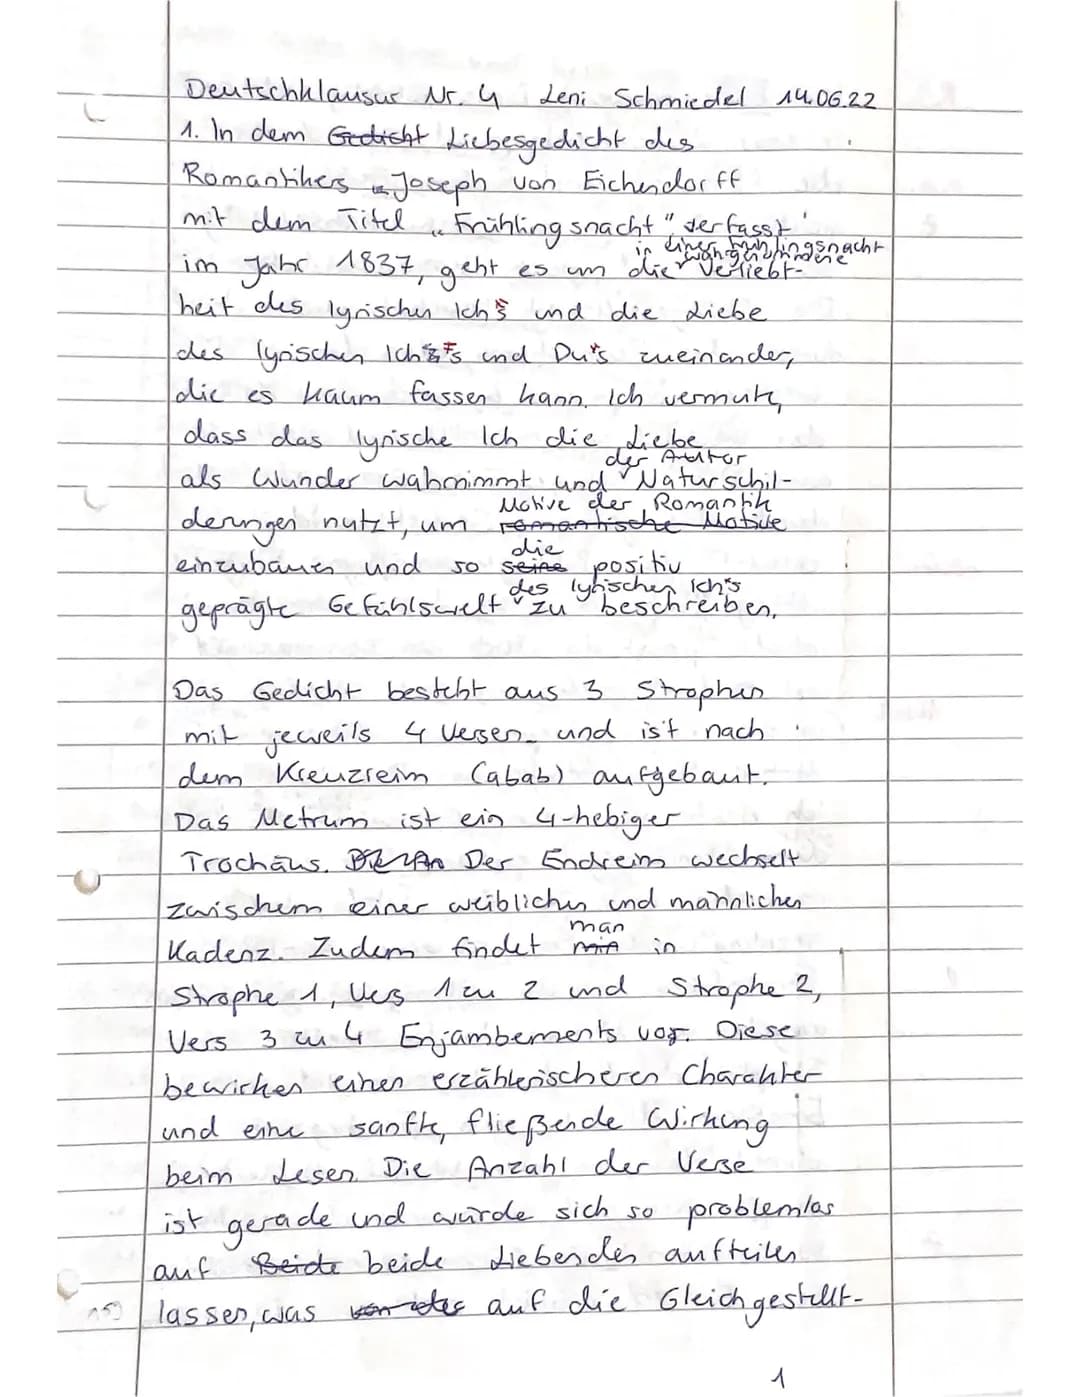 Deutschklausur Nr. 4 Leni Schmiedel 14.06.22
1. In dem Gedicht Liebesgedicht des
Romantikers Joseph von Eichendorff
mit dem Titel „Frühlingsnacht" verfasst
in einer Frühlingsnacht
im Jahr 1837, geht es um die Verliebt-
heit des lyrischen Ich's und die Liebe
des lyrischen Ich's und Du's zueinander,
die es kaum fassen kann. Ich vermute,
dass das lyrische Ich die Liebe
der Autor
als Wunder wahrnimmt und Naturschil-
Motive der Romantik
derungen nutzt, um romantische Motive
die
einzubauen und so seine positiv
des lyrischen Ich's
geprägte Gefühlswelt zu beschreiben.
Das Gedicht besteht aus 3 Strophen
mit jeweils 4 Versen und ist nach
dem Kreuzreim (abab) aufgebaut.
Das Metrum ist ein 4-hebiger
Trochäus. Der Endreim wechselt
zwischem einer weiblichen und männlichen
man
Kadenz. Zudem findet min in
Strophe 1, Vers 1 zu 2 und Strophe 2,
Vers 3 zu 4 Enjambements vor. Diese
bewirken einen erzählerischeren Charakter
und eine sanfte, fließende Wirkung
beim Lesen. Die Anzahl der Verse
ist gerade und würde sich so problemlos
auf Beide beide Liebenden aufteilen
lassen, was auf die Gleichgestellt-
15)
1